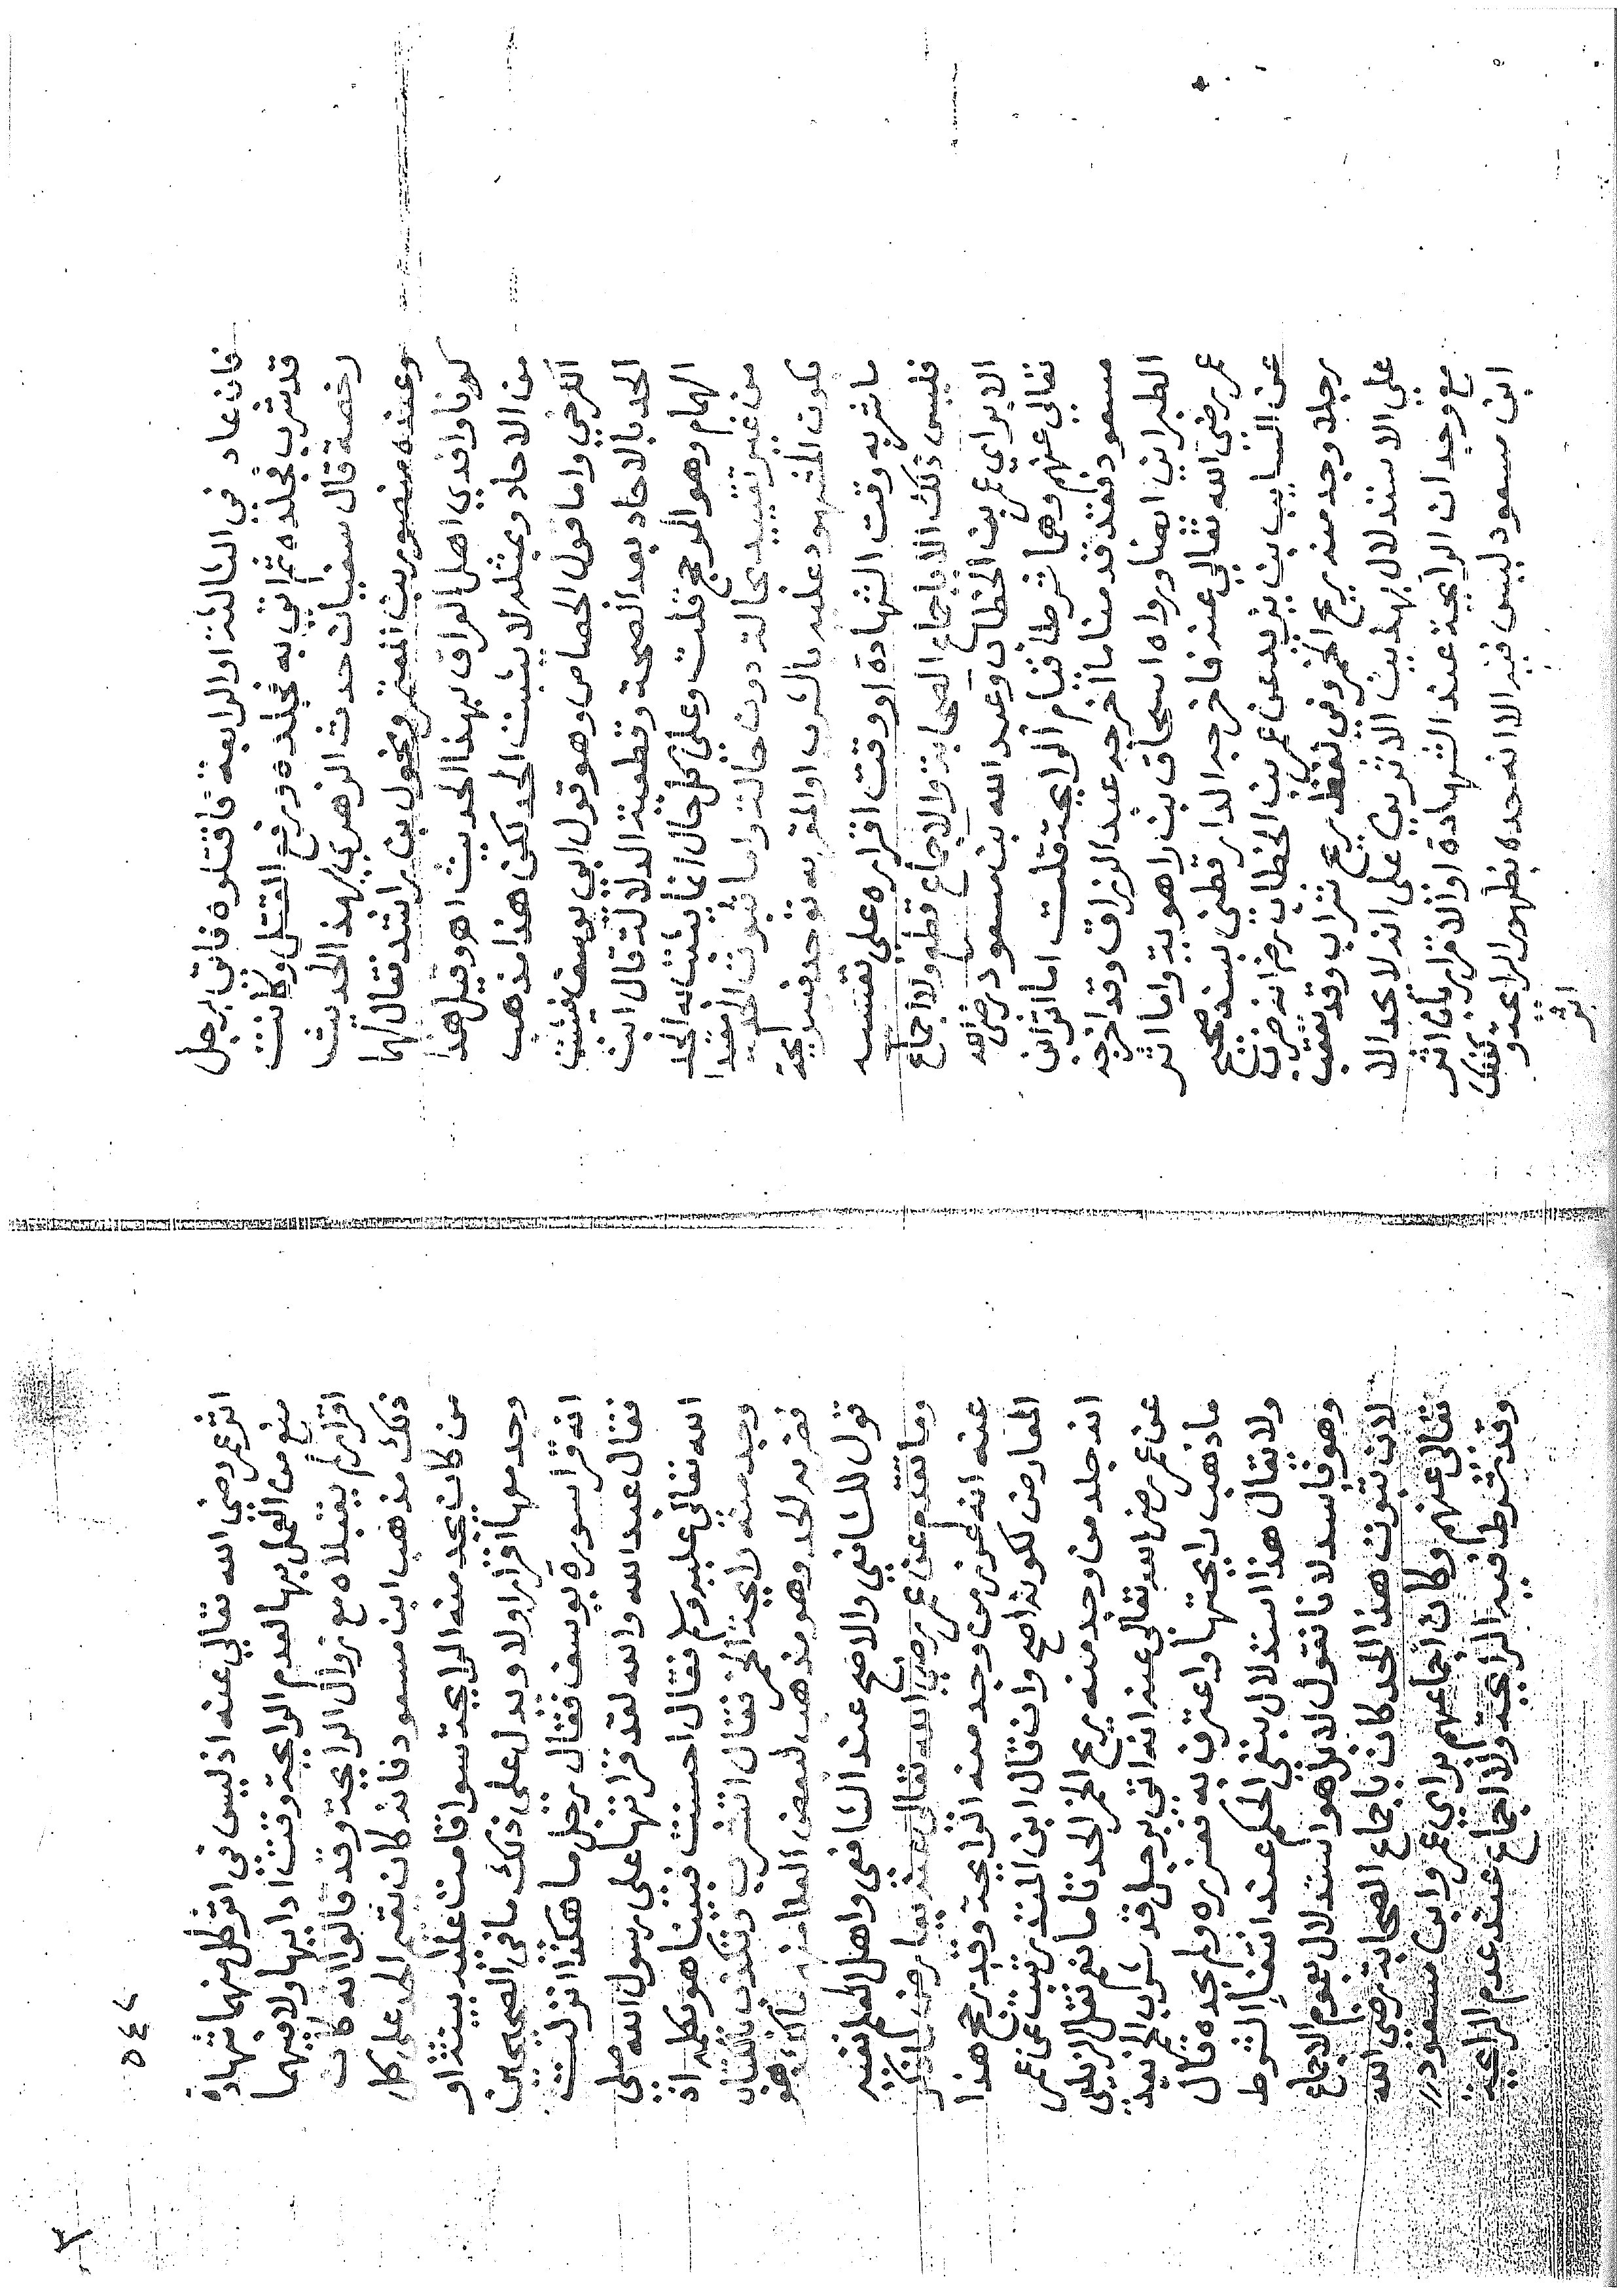 فان عاد في الثالثة او الرابعة فاقتلوه فاتي برجل
قد شرب فجلده ثم اتي به فجلده ورفع القتل وكانت
رخصة قال سفيان حدث الزهري بهذا الحديث
وعنده منصور بن المعتمر ومخول بن راشد فقال لهما
كونا وافدي اهل العراق بهذا الحديث اهـ وقيل هذا
من الاحاد وبمثله لا يثبت الحد لكن هذا مذهب
الكرخي واما قول الجصاص وهو قول ابي يوسف فيثبت
الحد بالاحاد بعد الصحة وقطعية الدلالة قال ابن
الهمام وهو المرجح قلت وعلي كل حال انما يثبت به الحد
من غير تقييد بحالة دون حالة واما ثبوت الحد مقيدا
بكون المشهود عليه بالشرب او المقر به توجد فيه رايحة
ما شربه وقت الشهادة او وقت اقراره علي نفسه
فليس ذلك الا باجماع الصحابة والاجماع قطع ولا اجماع
الا براي عمر بن الخطاب وعبد الله بن مسعود رضي الله
تعالى عنهم وهما شرطا قيام الرايحة قلت اما اثر ابن
مسعود فقد قدمنا ما اخرجه عبد الرزاق وقد اخرجه
الطبراني ايضا ورواه اسحاق بن راهويه واما اثر
عمر رضي الله تعالي عنه فاخرجه الدارقطني بسند صحيح
عن السايب بن يزيد عن عمر بن الخطاب رضي انه ضرب
رجلا وجد منه ريح الخمر وفي لفظ ريح شراب وقد تعقب
علي الاستدلال بهذين الاثرين على انه لا يحد الا
مع وجدان الرايحة عند الشهادة او الاقرار بأن اثر
ابن مسعود ليس فيه الا انه حده بظهور الرايحة و
اثر
اثر عمر رضي الله تعالي عنه اذ ليس في اثر كل منهما شهادة
منع من العمل بها لعدم الرايحة وقت ادايها ولا فيهما
اقرار لم يقبلاه مع زوال الرايحة وقد قالوا انه كان
ذلك مذهب ابن مسعود فانه كان يقيم الحد على كل
من كان يجد منه الرايحة سوا قامت عليه بينة او
وجد معها اقرار او لا ويدل على ذلك ما في الصحيحين
انه قرا سورة يوسف فقال رجل ما هكذا انزلت
فقال عبد الله والله لقد قراتها علي رسول الله صلى
الله تعالى عليه وسلم فقال احسنت فبينا هو يكلمه اذ
وجد منه رايحة الخمر فقال اتشرب وتكذب بالكتاب
فضربه الحد وهو مذهب لبعض العلما منهم مالك وهو
قول للشافعي والاصح عند الشافعي واهل العلم نفيه
وما تقدم عن عمر رضي الله تعالى عنه يعارض ما ذكر
عنه انه عزر من وجد منه الرايحة وقد رجح هذا
المعارض لكونه اصح وان قال ابن المنذر ثبت عن عمر
انه جلد من وجد منه ريح الخمر الحد تاما ثم نقل الزيلعي
عن عمر رضي الله تعالى عنه انه اتي برجل قد شرب الخمر بعد
ما ذهب رايحتها واعترف به فعزره ولم يحده قال
ولا يقال هذا استدلال بنفي الحكم عند انتفاء الشرط
وهو فاسد لانا نقول لا بل هو استدلال بعدم الاجماع
لان ثبوت هذا الحد كان باجماع الصحابة رضي الله
تعالى عنهم وكان اجماعهم براي عمر وابن مسعود
وقد شرط فيه الرايحة ولا اجماع عند عدم الرايحة
٥٤٧